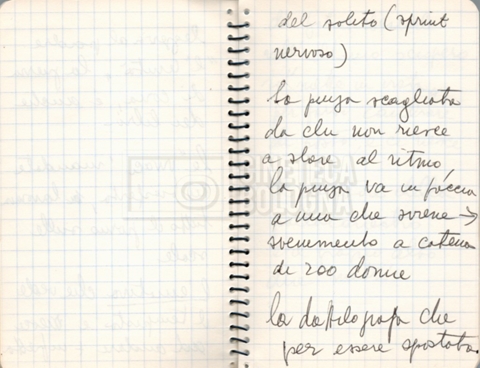 del solito (sprint
nervoso)
la pinza scagliata
da chi non riesce
a stare al ritmo
la pinza va in faccia
a una che sviene →
svenimento a catena
di 200 donne
la dattilografa che
per essere spostata
CINETECA
BOLOGNA